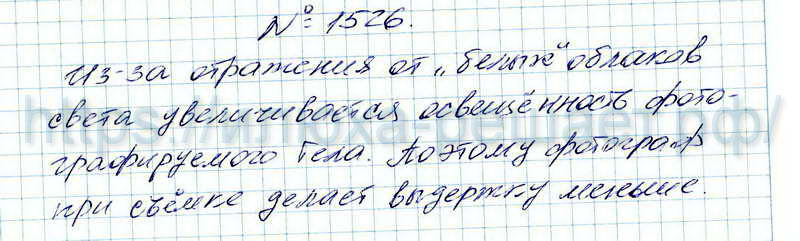 № 1526.
Из-за отражения от „белых" облаков
света увеличивается освещённость фото-
графируемого тела. Поэтому фотограф
при съёмке делает выдержку меньше.